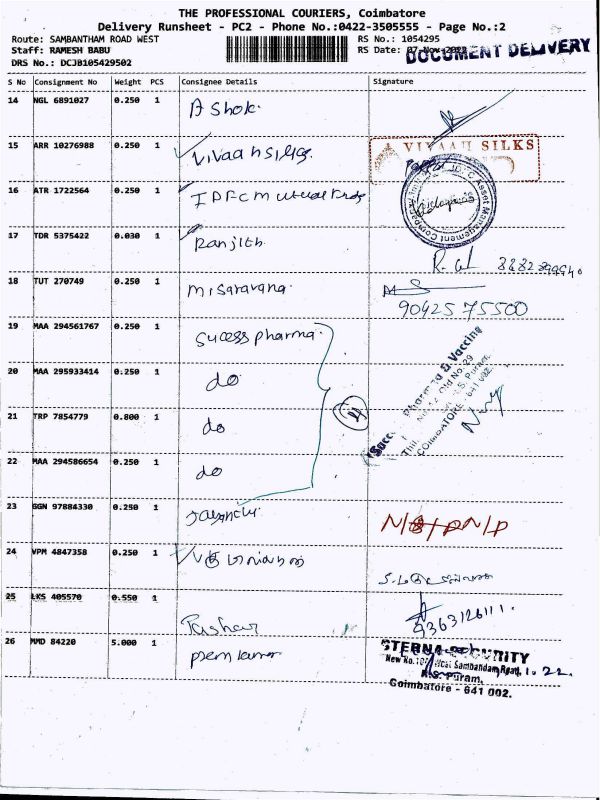 THE PROFESSIONAL COURIERS, Coimbatore
Delivery Runsheet - PC2 - Phone No.:0422-3505555 - Page No.:2
Route: SAMBANTHAM ROAD WEST
RS No.: 1054295
Staff: RAMESH BABU
RS Date: 07-Nov-2022
DOCUMENT DELIVERY
DRS No.: DCJB105429502
S No Consignment No Weight PCS Consignee Details Signature
14 NGL 6891027 0.250 1 Ashok.
15 ARR 10276988 0.250 1 Vivaah silks.
VIVAAH SILKS
16 ATR 1722564 0.250 1 IDFC Mutual Funds
Asset Management Company
17 TDR 5375422 0.030 1 Ranjith
18 TUT 270749 0.250 1 M. Saravana
90425 75500
19 MAA 294561767 0.250 1 Sucess pharma.
20 MAA 295933414 0.250 1 do
Pharma & Vaccine
Old No. 29
R.S. Puram,
COIMBATORE - 641 002.
21 TRP 7854779 0.800 1 do
4
22 MAA 294586654 0.250 1 do
23 GGN 97884330 0.250 1
24 VPM 4847358 0.250 1
25 LKS 405570 0.550 1
9363126111.
26 MMD 84220 5.000 1 prem kumar
SECURITY
West Sambandam Road,
R.S. Puram,
Coimbatore - 641 002.